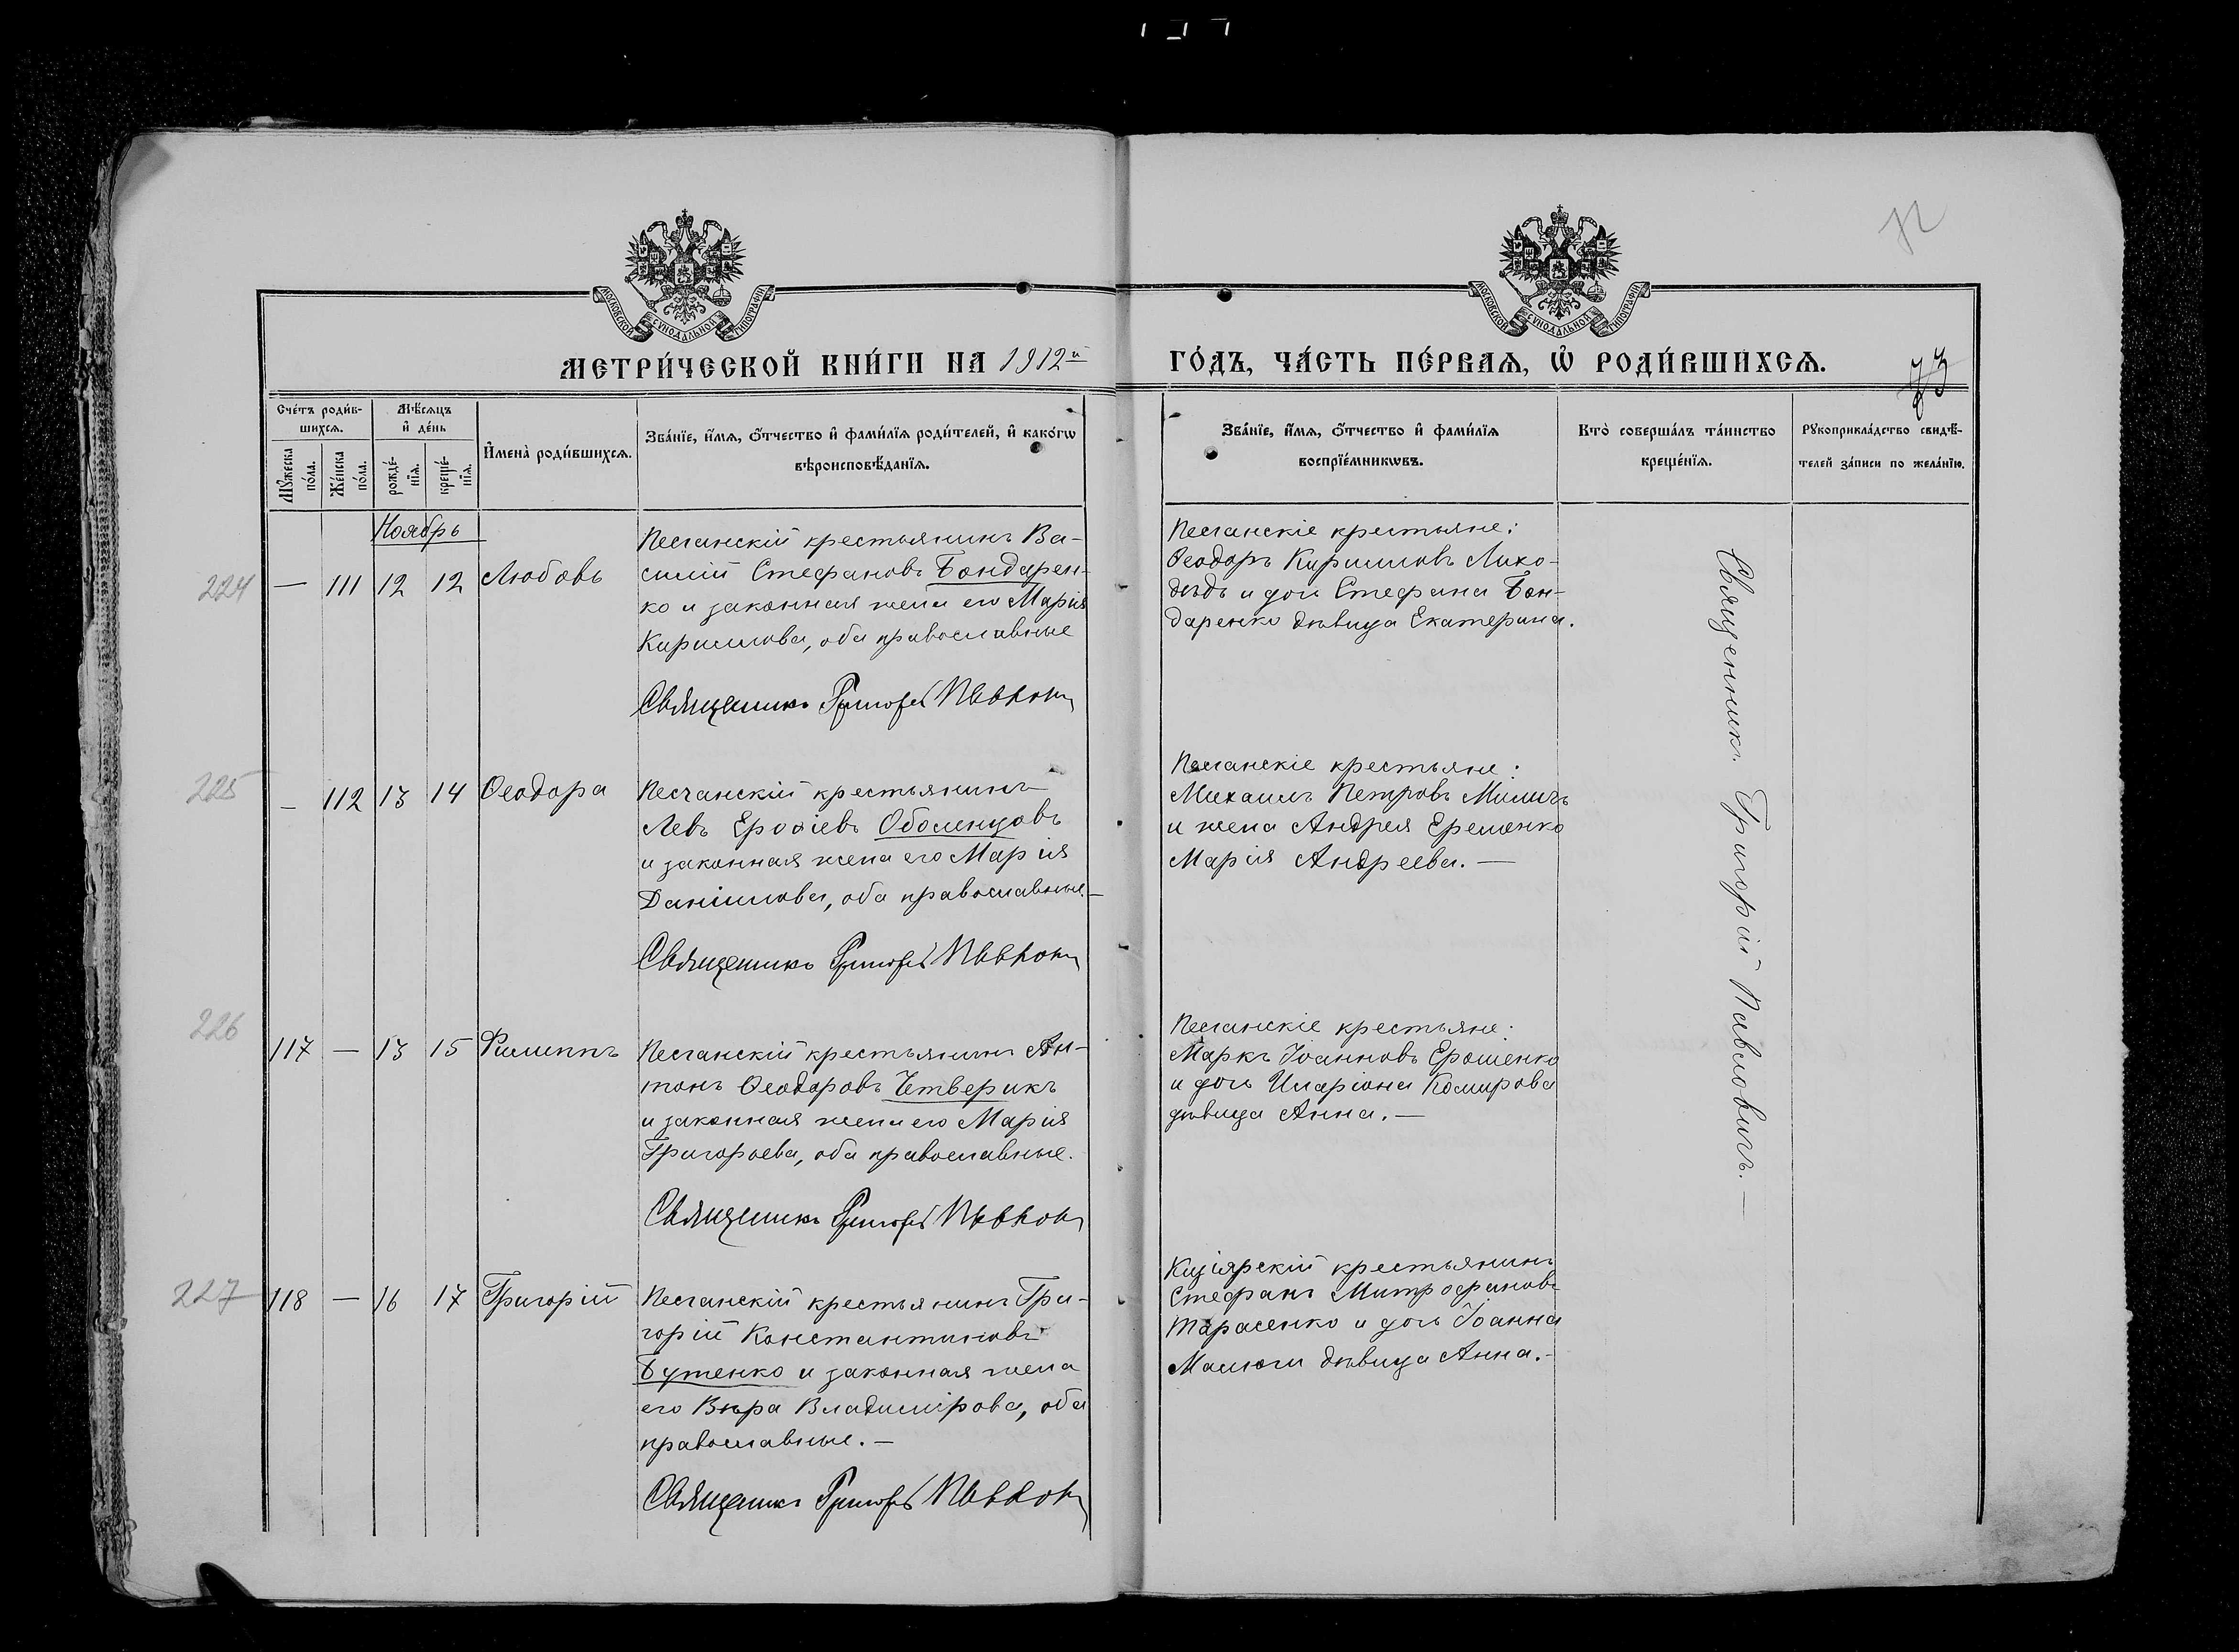 МОСКОВСКОЙ СУНОДАЛЬНОЙ ТИПОГРАФІИ
МОСКОВСКОЙ СУНОДАЛЬНОЙ ТИПОГРАФІИ
МЕТРИ́ЧЕСКОЙ КНИ́ГИ НА 1912й
ГО́ДЪ, ЧА́СТЬ ПЕ́РВАѦ, Ѡ҆ РОДИ́ВШИХСѦ.
73
Сче́тъ роди́в-
шихсѧ.
Мѣ́сѧцъ
и҆ де́нь
Мꙋ́жеска
по́ла.
Же́нска
по́ла.
рожде́-
нїѧ.
креще́-
нїѧ.
И҆мена̀ роди́вшихсѧ.
Зва́нїе, и҆́мѧ, ѻ҆́тчество и҆ фами́лїѧ роди́телей, и҆ како́гѡ
вѣроисповѣ́данїѧ.
Зва́нїе, и҆́мѧ, ѻ҆́тчество и҆ фами́лїѧ
воспрїе́мникѡвъ.
Кто̀ соверша́лъ та́инство
креще́нїѧ.
Рꙋкоприкла́дство свидѣ́-
телей за́писи по жела́нїю.
Ноябрь
224 — 111 12 12 Любовь
Песчанскій крестьянинъ Ва-
силій Стефановъ Бондарен-
ко и законная жена его Марія
Кириллова, оба православные
Священникъ Григорій Павлович
Песчанскіе крестьяне:
Ѳеодоръ Кирилловъ Лихо-
дѣдъ и дочь Стефана Бон-
даренко дѣвица Екатерина.
225 — 112 13 14 Ѳеодора
Песчанскій крестьянинъ
Левъ Ероѳіевъ Оболенцовъ
и законная жена его Марія
Даніилова, оба православные.—
Священникъ Григорій Павлович
Песчанскіе крестьяне:
Михаилъ Петровъ
и жена Андрея Еременко
Марія Андреева.—
226 117 — 13 15 Филиппъ
Песчанскій крестьянинъ Ан-
тонъ Ѳеодоровъ Четверикъ
и законная жена его Марія
Григорьева, оба православные.
Священникъ Григорій Павлович
Песчанскіе крестьяне:
Маркъ Іоанновъ Ерошенко
и дочь Иларіона Комирова
дѣвица Анна.—
227 118 — 16 17 Григорій
Песчанскій крестьянинъ Гри-
горій Константиновъ
Бутенко и законная жена
его Вѣра Владимірова, оба
православные.—
Священникъ Григорій Павлович
Кизіярскій крестьянинъ
Стефанъ Митрофановъ
Тарасенко и дочь Іоанна
Малюги дѣвица Анна.—
Священникъ Григорій Павловичъ.—